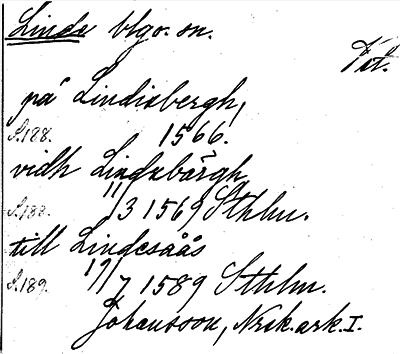 Linde blgo. sn.
Vst.
på Lindisbergh,
S.188. 1566.
vidh Lindabårgh
S.188. 11/3 1569 Sthlm.
till Lindesåås
S.189. 19/7 1589 Sthlm.
Johansson, Nrik.ark.I.